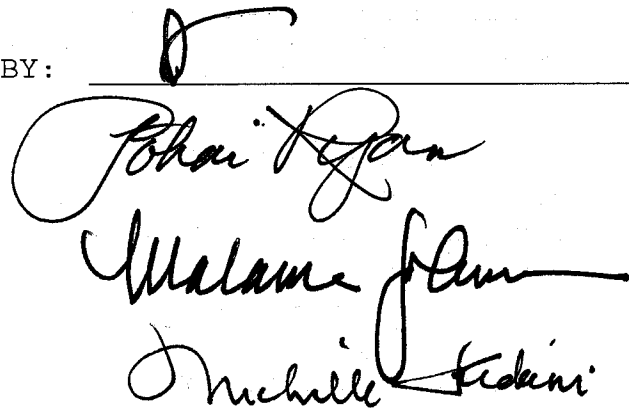 BY:
Pohai Ryan
Malama
Michelle Kidani